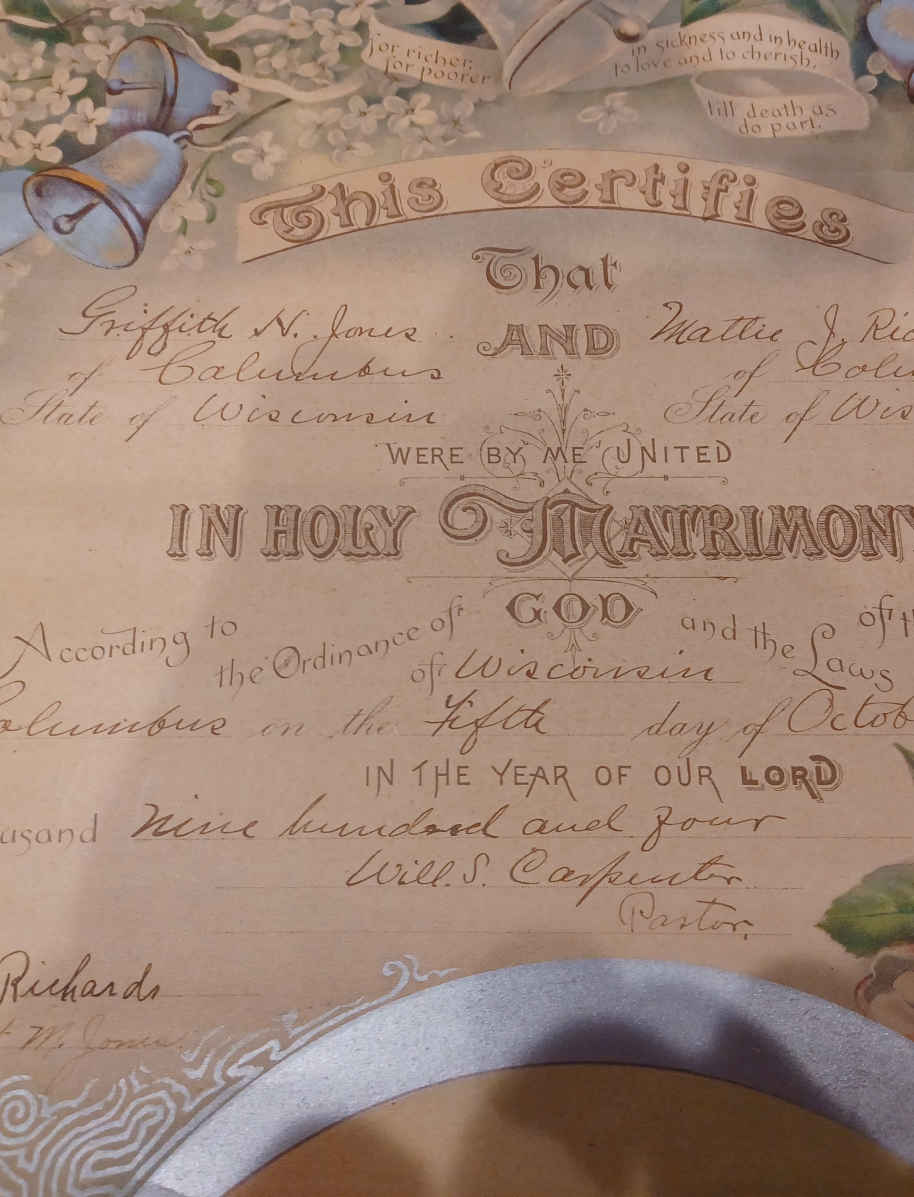 for richer,
for poorer
in sickness and in health
to love and to cherish,
till death as
do part.
This Certifies
That
Griffith H. Jones AND Mattie J. Ric
of Columbus of Colu
State of Wisconsin State of Wis
WERE BY ME UNITED
IN HOLY MATRIMONY
According to the Ordinance of GOD and the Laws of t
of Wisconsin
olumbus on the Fifth day of Octob
IN THE YEAR OF OUR LORD
usand Nine hundred and four
Will. S. Carpenter
Pastor.
Richards
M. Jones